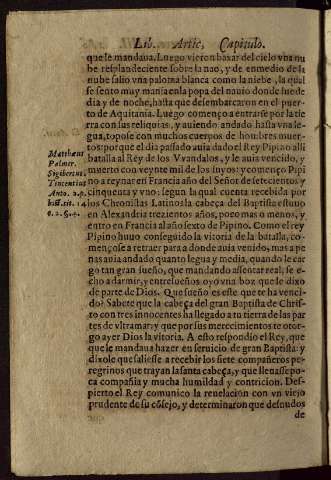 Lib. Artic, Capitulo.
que le mandaua. Luego vieron baxar del cielo vna nu
be resplandeciente sobre la nao, y de en medio de la
nube salio vna paloma blanca como la niebe, la qual
se sento muy mansa en la popa del nauio donde fue de
dia y de noche, hasta que desembarcaron en el puer-
to de Aquitania. Luego començo a entrarse por la tie
rra con sus reliquias, y auiendo andado hasta vna le-
gua, topose con muchos cuerpos de hombres muer-
tos: porque el dia passado auia dado el Rey Pipino alli
batalla al Rey de los Vvandalos, y le auia vencido, y
muerto con veynte mil de los suyos: y començo Pipi
no a reynar en Francia año del Señor de setecientos, y
cinquenta y vno: segun la qual cuenta recebida por
los Chronistas Latinos la cabeça del Baptista estuuo
en Alexandria trezientos años, poco mas o menos, y
entro en Francia al año sexto de Pipino. Como el rey
Pipino huuo conseguido la vitoria de la batalla, co-
mençose a retraer para donde auia venido, mas ape
nas auia andado quanto legua y media, quando le car
go tan gran sueño, que mandando assentar real, se e-
cho a dormir, y entre sueños oyo vna boz que le dixo
de parte de Dios. Que sueño es este que te ha venci-
do? Sabete que la cabeça del gran Baptista de Chris-
to con tres innocentes ha llegado a tu tierra de las par
tes de vltramar: y que por sus merecimientos te otor-
go ayer Dios la vitoria. A esto respondio el Rey, que
que le mandaua hazer en seruicio de gran Baptista: y
dixole que saliesse a recebir los siete compañeros pe-
regrinos que trayan la santa cabeça, y que llenasse po-
ca compañia y mucha humildad y contricion. Des-
pierto el Rey comunico la reuelacion con vn viejo
prudente de su cõsejo, y determinaron que desnudos
de
Matthæus
Palmer.
Sigibertus,
Vincentius
Anto. 2. p.
hist. tit. 14
c. 2. §. 4.